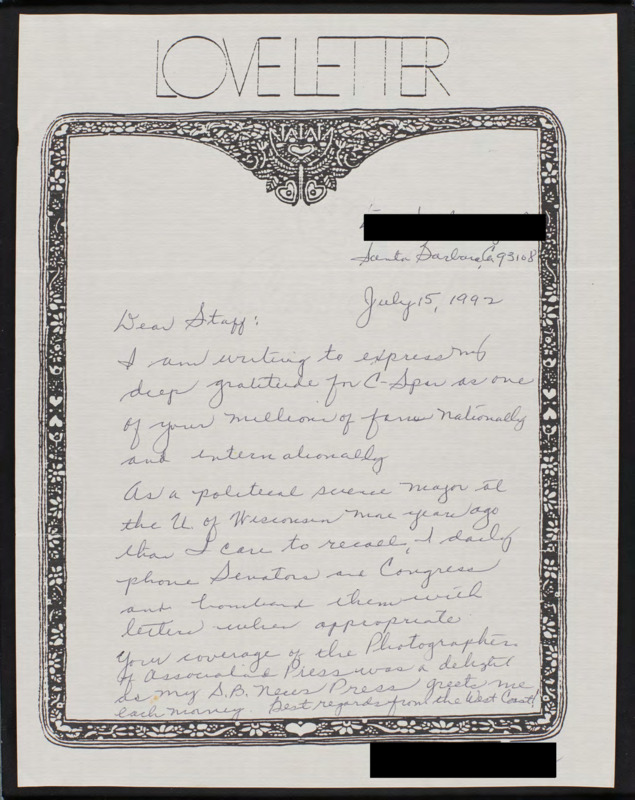 LOVE LETTER
Santa Barbara, Ca 93108
July 15, 1992
Dear Staff:
I am writing to express my
deep gratitude for C-Span as one
of your millions of fans nationally
and internationally
As a political science major at
the U. of Wisconsin more years ago
than I care to recall, I daily
phone Senators and Congress
and bombard them with
letters when appropriate.
Your coverage of the Photographers
of Associated Press was a delight
as my S.B. News Press greets me
each morning. Best regards from the West Coast!